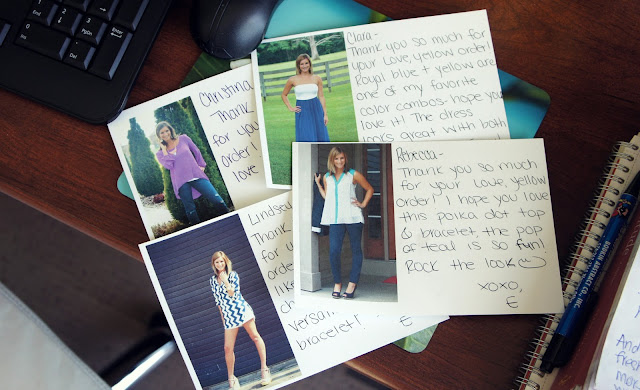 Clara-
Thank you so much for
your Love, yellow order!
Royal blue + yellow are
one of my favorite
color combos- hope you
love it! The dress
looks great with both
Christina
Thank
for you
order! I
love
Rebecca-
Thank you so much
for your Love, yellow
order! I hope you love
this polka dot top
& bracelet, the pop
of teal is so fun!
Rock the look
xoxo,
E
Lindsey
Thank
for u
order
like
ch
versa
bracelet!
E
Enter